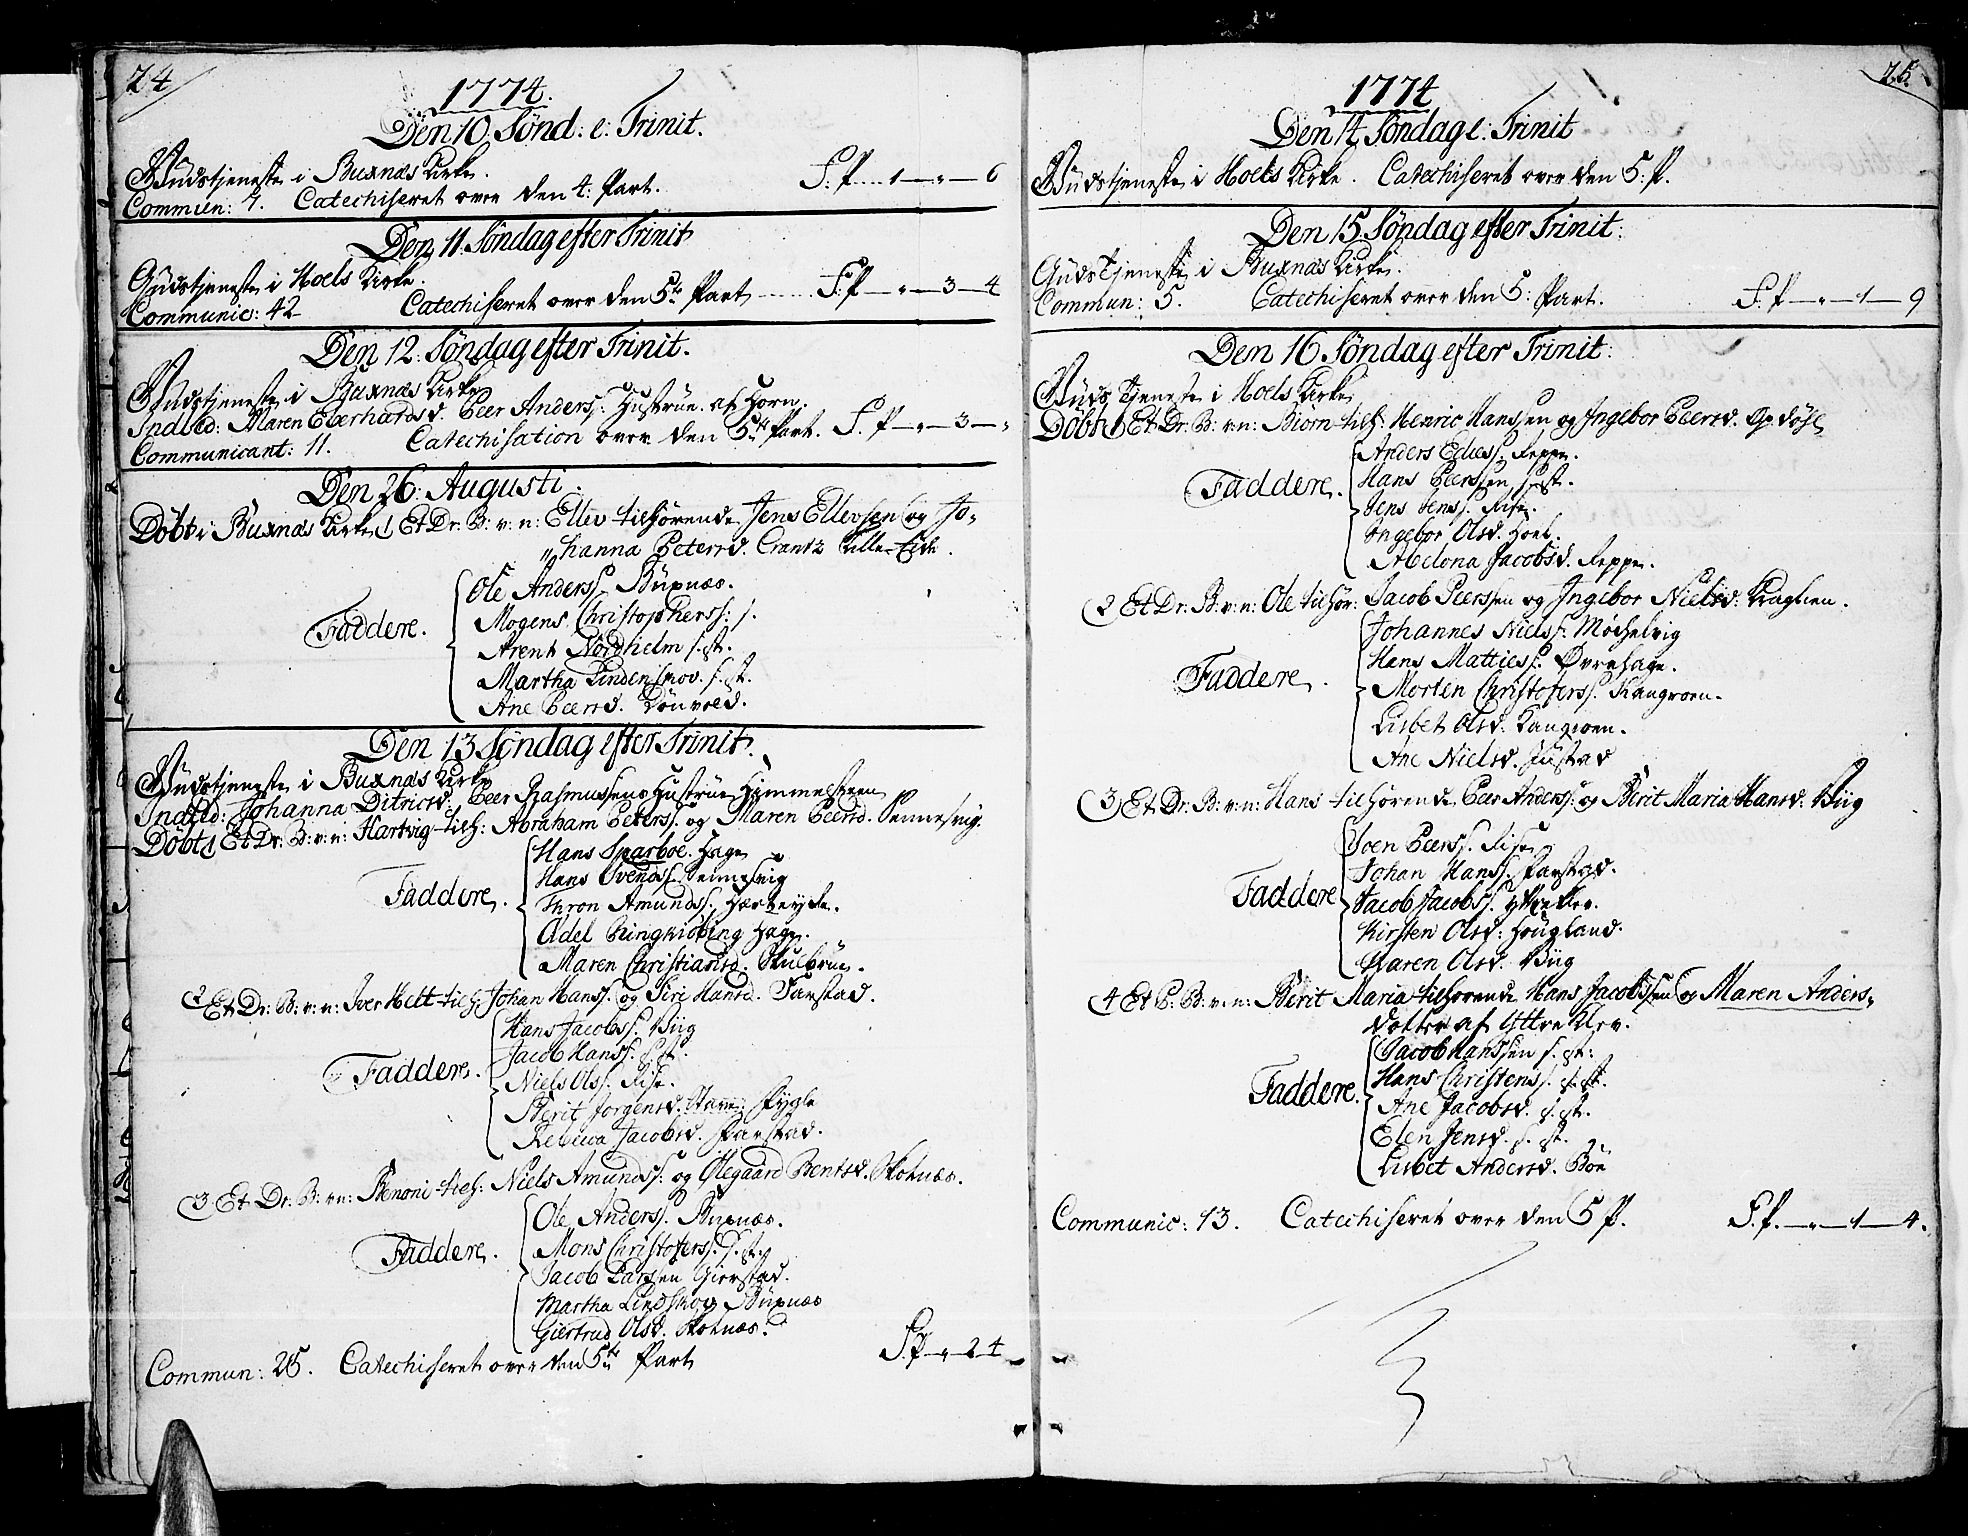 24
1774.
Den 10. Sønd: e: Trinit.
Gudstjeneste i Buxnæs Kirke.
Commun: 7. Catechiseret over den 4: Part. F. P. 1 — " — 6
Den 11. Søndag efter Trinit
Gudstjeneste i Hoels Kirke.
Communic: 42 Catechiseret over den 5te Part F: P — " — 3 — 4
Den 12. Søndag efter Trinit.
Gudstjeneste i Buxnæs Kirke
Indled: Maren Eberhardsd. Peer Anderss: Hustrue af Horn.
Communicant: 11. Catechisation over den 5te Part. F. P — " — 3 — "
Den 26. Augusti.
Døbt i Buxnæs Kirke 1 Et Dr: B: v: n: Ellev tilhørende Jens Ellevsen og Jo-
hanna Petersd. Crantz Lille-Eide.
Faddere.
Ole Anderss. Buxnæs.
Mogens Christopherss: s.
Arent Nordhielm s. st.
Martha Lindenskov. s. st.
Ane Peersd.
Den 13 Søndag efter Trinit.
Gudstjeneste i Buxnæs Kirke
Indled: Johanna Ditricsd: Peer Rasmussens Hustrue Himmelsteen
Døbt 1 Et Dr: B: v: n: Hartvig tilh: Abraham Peterss. og Maren Peersd. Sennesvig.
Faddere.
Hans Sparboe. Hage
Hans Svends. Sennesvig
Thron Amundss.
Adel Ringkiøbing Hage.
Maren Christiansd. Skulbrue.
2 Et Dr: B: v: n: Iver Hett tilh: Johan Hanss. og Siri Hansd. Farstad.
Faddere.
Hans Jacobss. Biig
Jacob Hanss. s. st.
Niels Olss. Rise.
Berit Jørgensd. Stam. Fygle
Rebecca Jacobsd. Farstad.
3 Et Dr: B: v: n: Benoni tilh: Niels Amundss: og Olegaard Bentsd. Skotnæs.
Faddere.
Ole Anderss. Buxnæs.
Mons Christoferss. s. st.
Jacob Larssen Gierstad.
Martha Lindskog Buxnæs
Giertrud Olsd. Skotnæs.
Commun: 25. Catechiseret over den 5te Part F. P — " — 2 4
25.
1774
Den 14 Søndag e: Trinit
Gudstjeneste i Hoels Kirke. Catechiseret over den 5. P.
Den 15. Søndag efter Trinit:
Gudstjeneste i Buxnæs Kirke.
Commun: 5. Catechiseret over den 5: Part. F. P — " — 1 — 9
Den 16. Søndag efter Trinit:
Gudstjeneste i Hoels Kirke
Døbt 1 Et Dr: B: v: n: Biørn tilh: Henric Hanssen og Ingebor Peersd. Opdøhl
Faddere.
Anders Ediess. Reppe.
Hans Peerssen s. st.
Jens Jenss. Rise.
Ingebor Olsd. Hoel.
Abelona Jacobsd. Reppe.
2 Et Dr: B: v: n: Ole tilhør: Jacob Peerssen og Ingebor Nielsd: Kraglien.
Faddere.
Johannes Nielss: Møchelvig
Hans Mattiess. Øvrehage.
Morten Christoferss. Kangroen.
Lisbet Olsd. Kangroen.
Ane Nielsd. Justad
3 Et Dr: B: v: n: Hans tilhørende Peer Anderss: og Berit Maria Hansd: Biig
Faddere
Joen Peerss. Rise
Johan Hanss. Farstad.
Jacob Jacobss. Yttre Klev.
Kirsten Olsd: Hougland.
Maren Olsd. Biig
4 Et P. B: v: n: Berit Maria tilhørende Hans Jacobssen og Maren Anders-
dotter af Yttre Klev.
Faddere.
Jacob Hanssen s. st:
Hans Christens. s. st.
Ane Jacobsd. s. st.
Elen Jensd. s. st.
Lisbet Andersd. Böe
Communic: 13. Catechiseret over den 5 P. F. P. — " — 1 — 4.